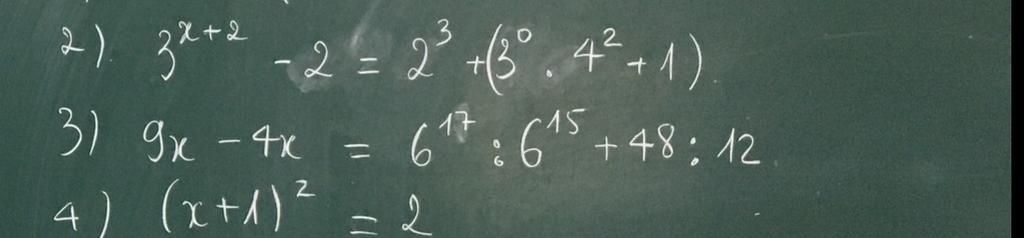 2) 3^{x+2} - 2 = 2^3 + (3^0 . 4^2 + 1)
3) 9x - 4x = 6^{17} : 6^{15} + 48 : 12
4) (x+1)^2 = 2